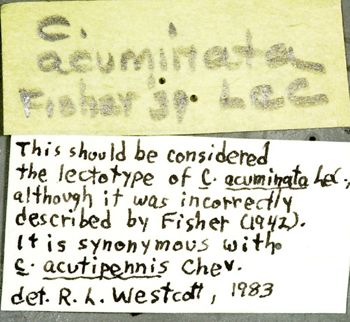 C.
acuminata
Fisher Lec
This should be considered
the lectotype of C. acuminata Lec.,
although it was incorrectly
described by Fisher (1942).
It is synonymous with
C. acutipennis Chev.
det. R. L. Westcott, 1983